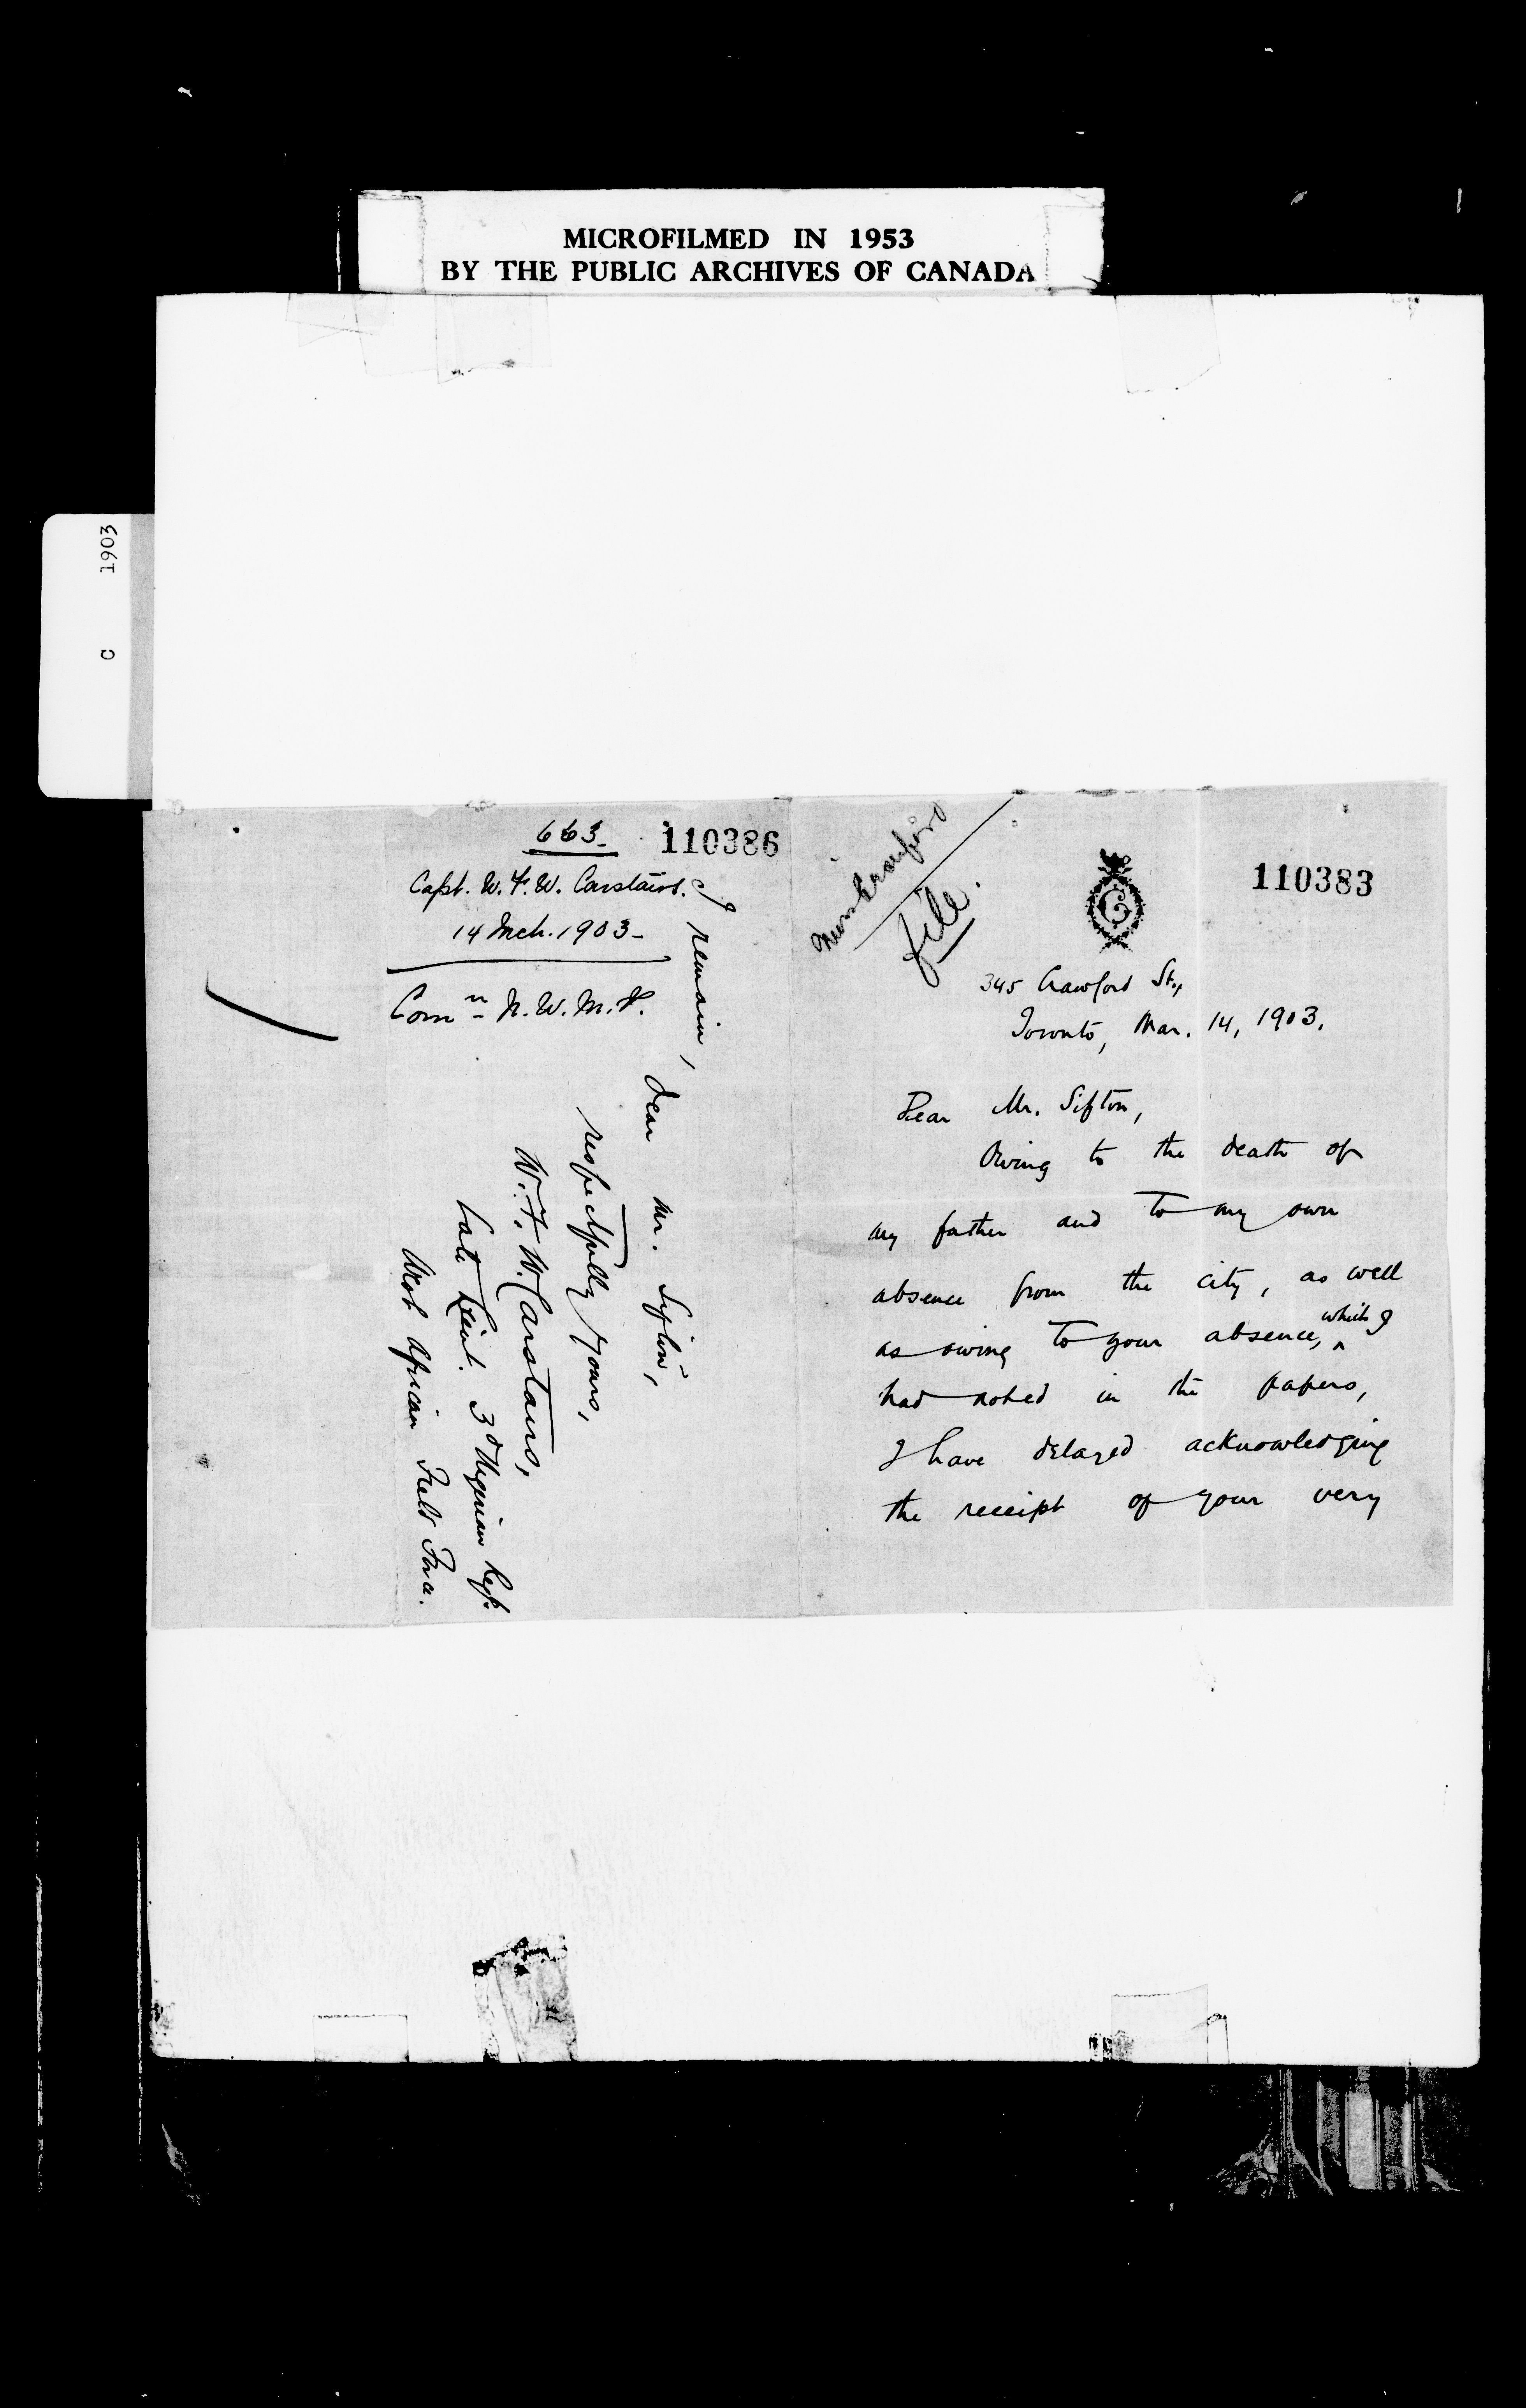 MICROFILMED IN 1953
BY THE PUBLIC ARCHIVES OF CANADA
C 1903
663-
110386
Capt. W. F. W. Carstairs.
14 Mch. 1903-
Comn N. W. M. P.
I remain,
Dear Mr. Sifton,
respectfully yours,
W. F. W. Carstairs,
Late Lieut. 3d Nigerian Regt.
West African Field Force.
Miss Crawford
file.
110383
345 Crawford St.,
Toronto, Mar. 14, 1903.
Dear Mr. Sifton,
Owing to the death of
my father and to my own
absence from the city, as well
as owing to your absence, which I
had noted in the papers,
I have delayed acknowledging
the receipt of your very